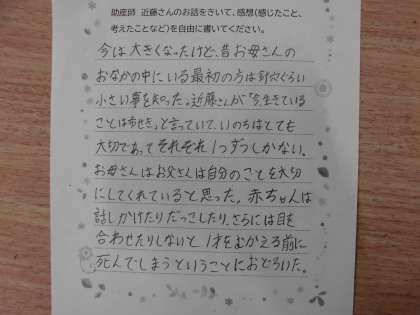 助産師　近藤さんのお話をきいて、感想(感じたこと、
考えたことなど)を自由に書いてください。
今は大きくなったけど、昔お母さんの
おなかの中にいる最初の方は針穴ぐらい
小さい事を知った。近藤さんが「今、生きている
ことはきせき」と言っていて、いのちはとても
大切であってそれぞれ1つずつしかない。
お母さんはお父さんは自分のことを大切
にしてくれていると思った。赤ちゃんは
話しかけたりだっこしたり、さらには目を
合わせたりしないと1才をむかえる前に
死んでしまうということにおどろいた。